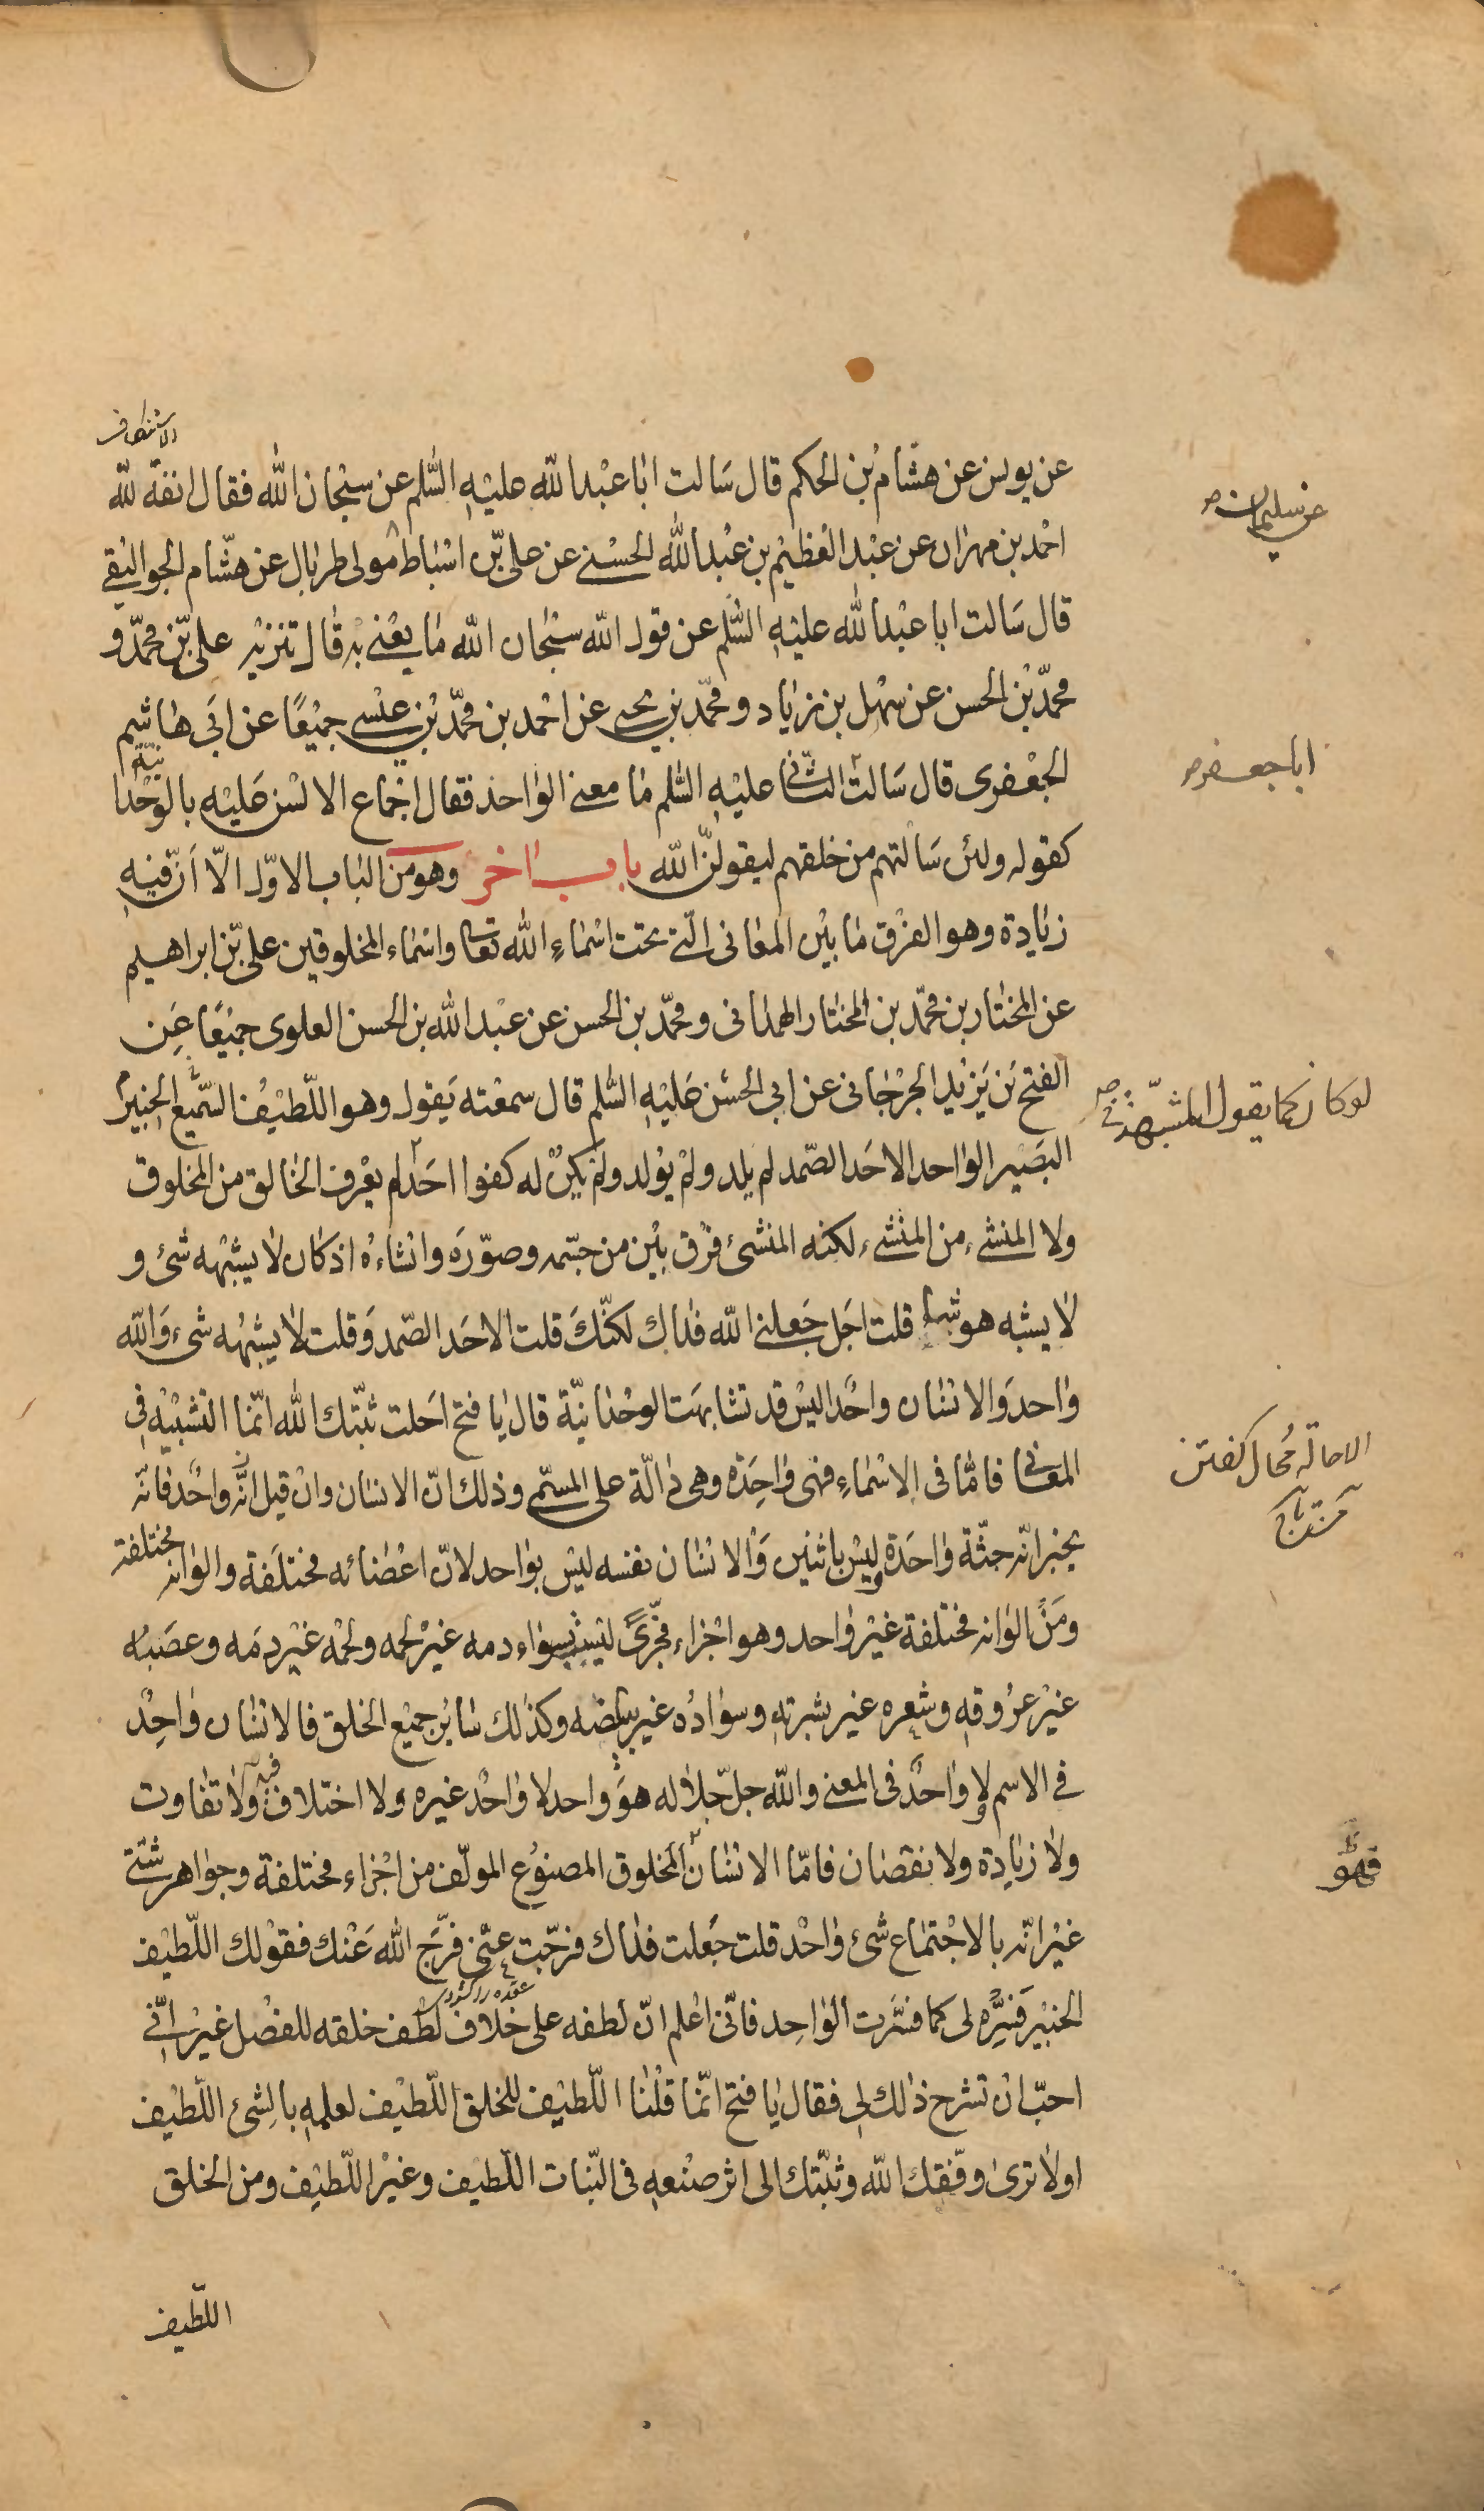 الاستنكاف
عن يونس عن هشام بن الحكم قال سَالت ابا عبْد الله عليْهِ السّلم عن سبْحان الله فقال انفة لله
عن سليمان صح
احمد بن مهران عن عبْد العظيْم بن عبْد الله الحسنے عن علی بّن اسْباط مولی طربال عن هشام الجواليقے
قال سَالت ابا عبْد الله عليْهِ السّلم عن قول الله سبْحان الله مَا يعْنے بهٖ قال تنزيْه علی بّن محمّد و
محمّد بْن الحسن عن سهْل بن زياد و محمّد بن يحيے عن احْمد بن محمّد بْن عيْسے جميْعًا عن ابَی هاشم
الجعْفری قال سَالت الثّانی عليْهِ السّلم مَا معنے الواحد فقال اجْماع الالسْن عَليْهِ بالوَحْدا نيّة
ابا جعفر صح
كقوله ولئن سَالتهم من خلقهم ليقولنّ الله باب اخر وهو من الباب الاوّل الّا اَنّ فيْهِ
زيَادة وهو الفرْق مَا بيْن المعَانی الّتے تحت اسْماءِ الله تعالی واسْماء المخلوقين علی بّن ابراهيم
عن المختار بن محمّد بن المختار الهمدانی و محمّد بن الحسن عن عبْد الله بن الحسن العلوی جميْعًا عَن
الفتح بَن يَزيْد الجرْجانی عن ابی الحسَن عَليْهِ السّلم قال سمعْته يَقول وهو اللّطيْف الخبيْر السّميْع
لو كان كما يقول المشبّهة صح
البَصيْر الواحد الاحَد الصّمد لم يلد ولمْ يوْلد ولمْ يكنْ له كفوا احَد لم يعْرف الخالق من المخلوق
ولا المنشیء من المنشیء لكنّه المنشئ فرْق بيْن من جسّمه وصوّرَه وانْشاءهُ اذ كان لا يشْبهه شیء و
لا يشبه هو شيئا قلت اجَل جَعلنے الله فداك لكنّكَ قلت الاحَد الصّمد وَقلت لا يشبهُه شیء وَالله
واحد وَالانسان واحْد اليسْ قد تشابهَت الوحْدانيّة قال يا فتح احَلت ثبّتك الله انّما التشبيْه فی
الاحالة محال كفتن
المعانی فامّا فی الاسْماءِ فهی وَاحِدَة وهی دَالّة علی المسمّے وذلك انّ الانسان وانْ قيل انّه واحْد فانّه
يخبر انّه جثّة واحَدة وليْس باثنيْن وَالانسان نفسه ليْس بواحد لانّ اعْضائه مختلفَة والوانه مختلفة
ومَنْ الوَانه مختلفة غيْر واحد وهو اجْزاء مجّزئ ليْست بسواء دمه غيْر لحمه ولحْمه غيْر دمَه وعصَبه
غيْر عرُوقهٖ وشعره غير بشرتهٖ وسوادُه غير بياضه وكذلك سائر جميْع الخلق فالانسان واحِد
فی الاسم ولا واحد فی المعنے والله جلّ جلاله هوَ واحد لا واحد غيره ولا اختلاف فيهٖ ولا تفاوت
ولا زيادة ولا نقصان فامّا الانسان المخلوق المصنوْع المولّف من اجْزاء مختلفة وجواهر شتّے
فهو
غيْر انّه بالاجْتماع شیء واحْد قلت جعلت فداك فرّجت عنّی فرّج الله عَنْك فقوْلك اللّطيْف
الخبيْر فَسِّره لی كما فسّرت الواحِد فانّی اعْلم انّ لطفه علی خلاف لطف خلقه للفصْل غيْر انّی
احبّ انْ تشرح ذلك لی فقال يا فتح انّما قلْنا اللّطيْف للخلق اللّطيْف لعلمهٖ بالشیء اللّطيْف
اولا تری وفّقك الله وثبّتك الی اثر صنْعهٖ فی النّبات اللّطيف وغيْر اللّطيْف ومن الخلق
اللّطيف